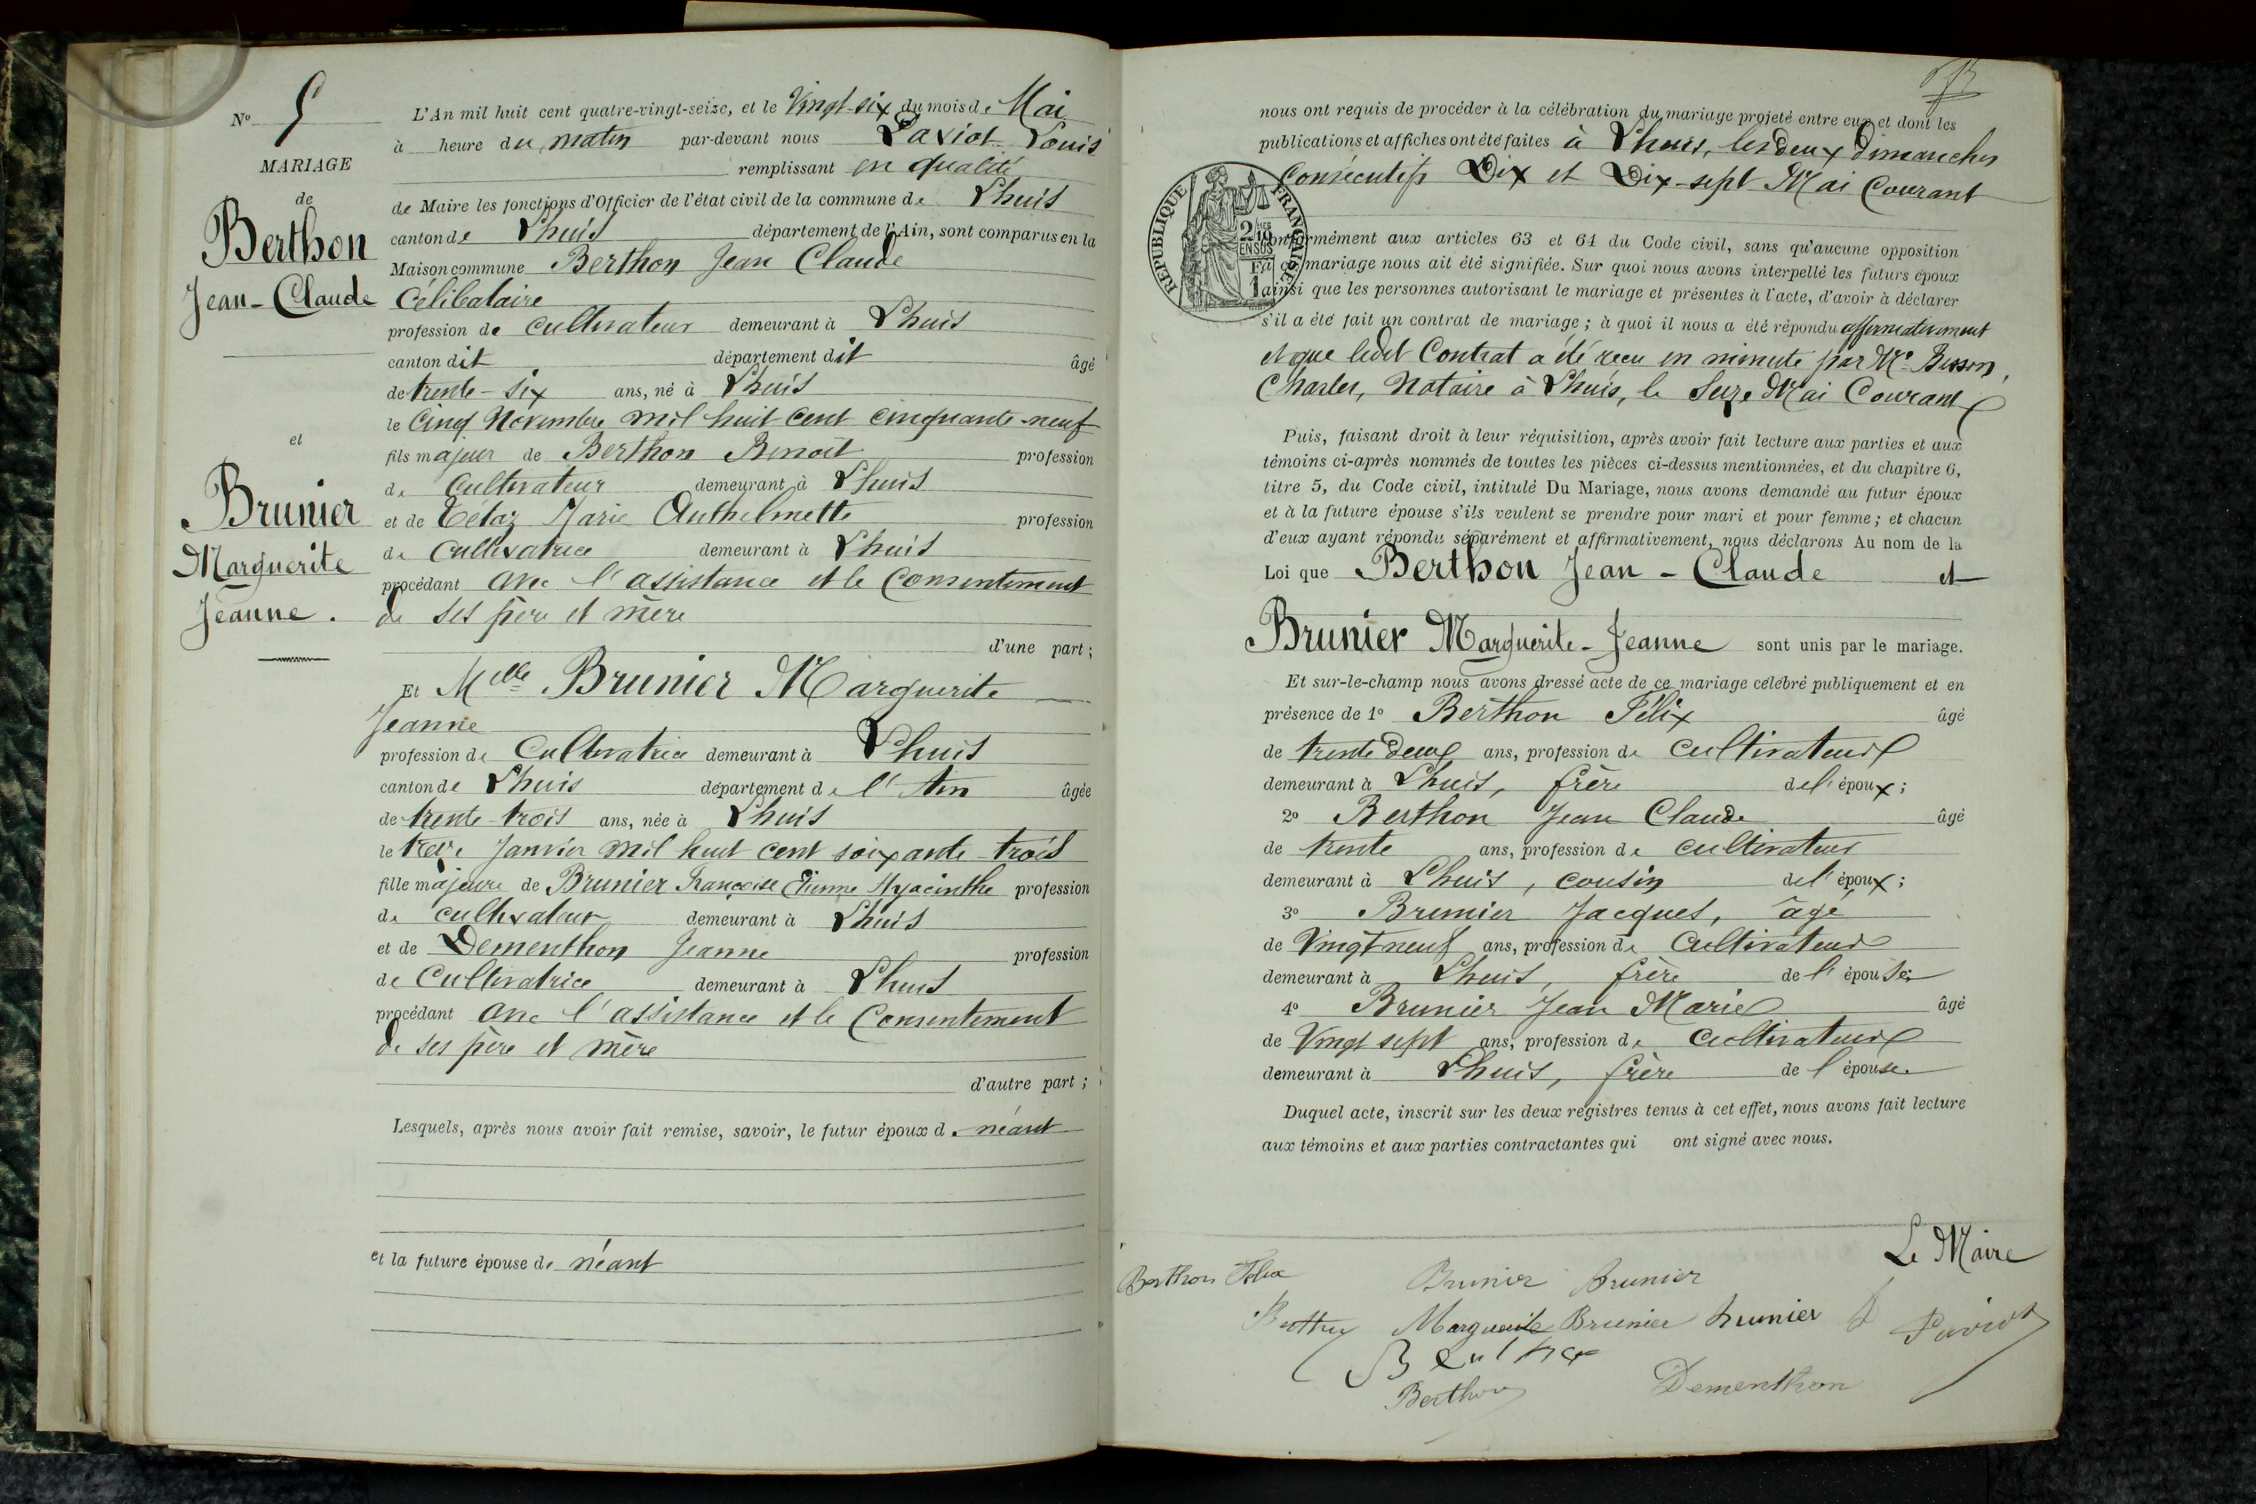 N° 5
MARIAGE
de
Berthon
Jean-Claude
et
Brunier
Marguerite
Jeanne.
L'An mil huit cent quatre-vingt-seize, et le Vingt-six du mois de Mai
à heure du matin par-devant nous Paviot Louis
remplissant en qualité
de Maire les fonctions d'Officier de l'état civil de la commune de Lhuis
canton de Lhuis département de l'Ain, sont comparus en la
Maison commune Berthon Jean Claude
Célibataire
profession de cultivateur demeurant à Lhuis
canton dit département dit âgé
de trente-six ans, né à Lhuis
le cinq Novembre mil huit cent cinquante-neuf
fils majeur de Berthon Benoit profession
de Cultivateur demeurant à Lhuis
et de Tétaz Marie Anthelmette profession
de Cultivatrice demeurant à Lhuis
procédant avec l'assistance et le Consentement
de ses père et mère
d'une part;
Et Melle Brunier Marguerite
Jeanne
profession de Cultivatrice demeurant à Lhuis
canton de Lhuis département de l'Ain âgée
de trente-trois ans, née à Lhuis
le treize Janvier mil huit cent soixante-trois
fille majeure de Brunier Françoise Etienne Hyacinthe profession
de cultivateur demeurant à Lhuis
et de Dementhon Jeanne profession
de Cultivatrice demeurant à Lhuis
procédant avec l'assistance et le Consentement
de ses père et mère
d'autre part;
Lesquels, après nous avoir fait remise, savoir, le futur époux de néant
et la future épouse de néant
nous ont requis de procéder à la célébration du mariage projeté entre eux et dont les
publications et affiches ont été faites à Lhuis, les deux Dimanches
Consécutifs Dix et Dix-sept Mai Courant
RÉPUBLIQUE FRANÇAISE
conformément aux articles 63 et 64 du Code civil, sans qu'aucune opposition
mariage nous ait été signifiée. Sur quoi nous avons interpellé les futurs époux
ainsi que les personnes autorisant le mariage et présentes à l'acte, d'avoir à déclarer
s'il a été fait un contrat de mariage; à quoi il nous a été répondu affirmativement
et que ledit Contrat a été reçu en minute par Me
Charles, Notaire à Lhuis, le Seize Mai Courant
Puis, faisant droit à leur réquisition, après avoir fait lecture aux parties et aux
témoins ci-après nommés de toutes les pièces ci-dessus mentionnées, et du chapitre 6,
titre 5, du Code civil, intitulé Du Mariage, nous avons demandé au futur époux
et à la future épouse s'ils veulent se prendre pour mari et pour femme; et chacun
d'eux ayant répondu séparément et affirmativement, nous déclarons Au nom de la
Loi que Berthon Jean-Claude et
Brunier Marguerite-Jeanne sont unis par le mariage.
Et sur-le-champ nous avons dressé acte de ce mariage célébré publiquement et en
présence de 1° Berthon Félix âgé
de trente deux ans, profession de cultivateur
demeurant à Lhuis, frère de l'époux;
2° Berthon Jean Claude âgé
de trente ans, profession de cultivateur
demeurant à Lhuis, cousin de l'époux;
3° Brunier Jacques, âgé
de Vingt neuf ans, profession de Cultivateur
demeurant à Lhuis, frère de l'épouse;
4° Brunier Jean Marie âgé
de Vingt sept ans, profession de cultivateur
demeurant à Lhuis, frère de l'épouse.
Duquel acte, inscrit sur les deux registres tenus à cet effet, nous avons fait lecture
aux témoins et aux parties contractantes qui ont signé avec nous.
Le Maire
Berthon Felix Brunier Brunier
Marguerite Brunier Brunier Paviot
Berthon Dementhon